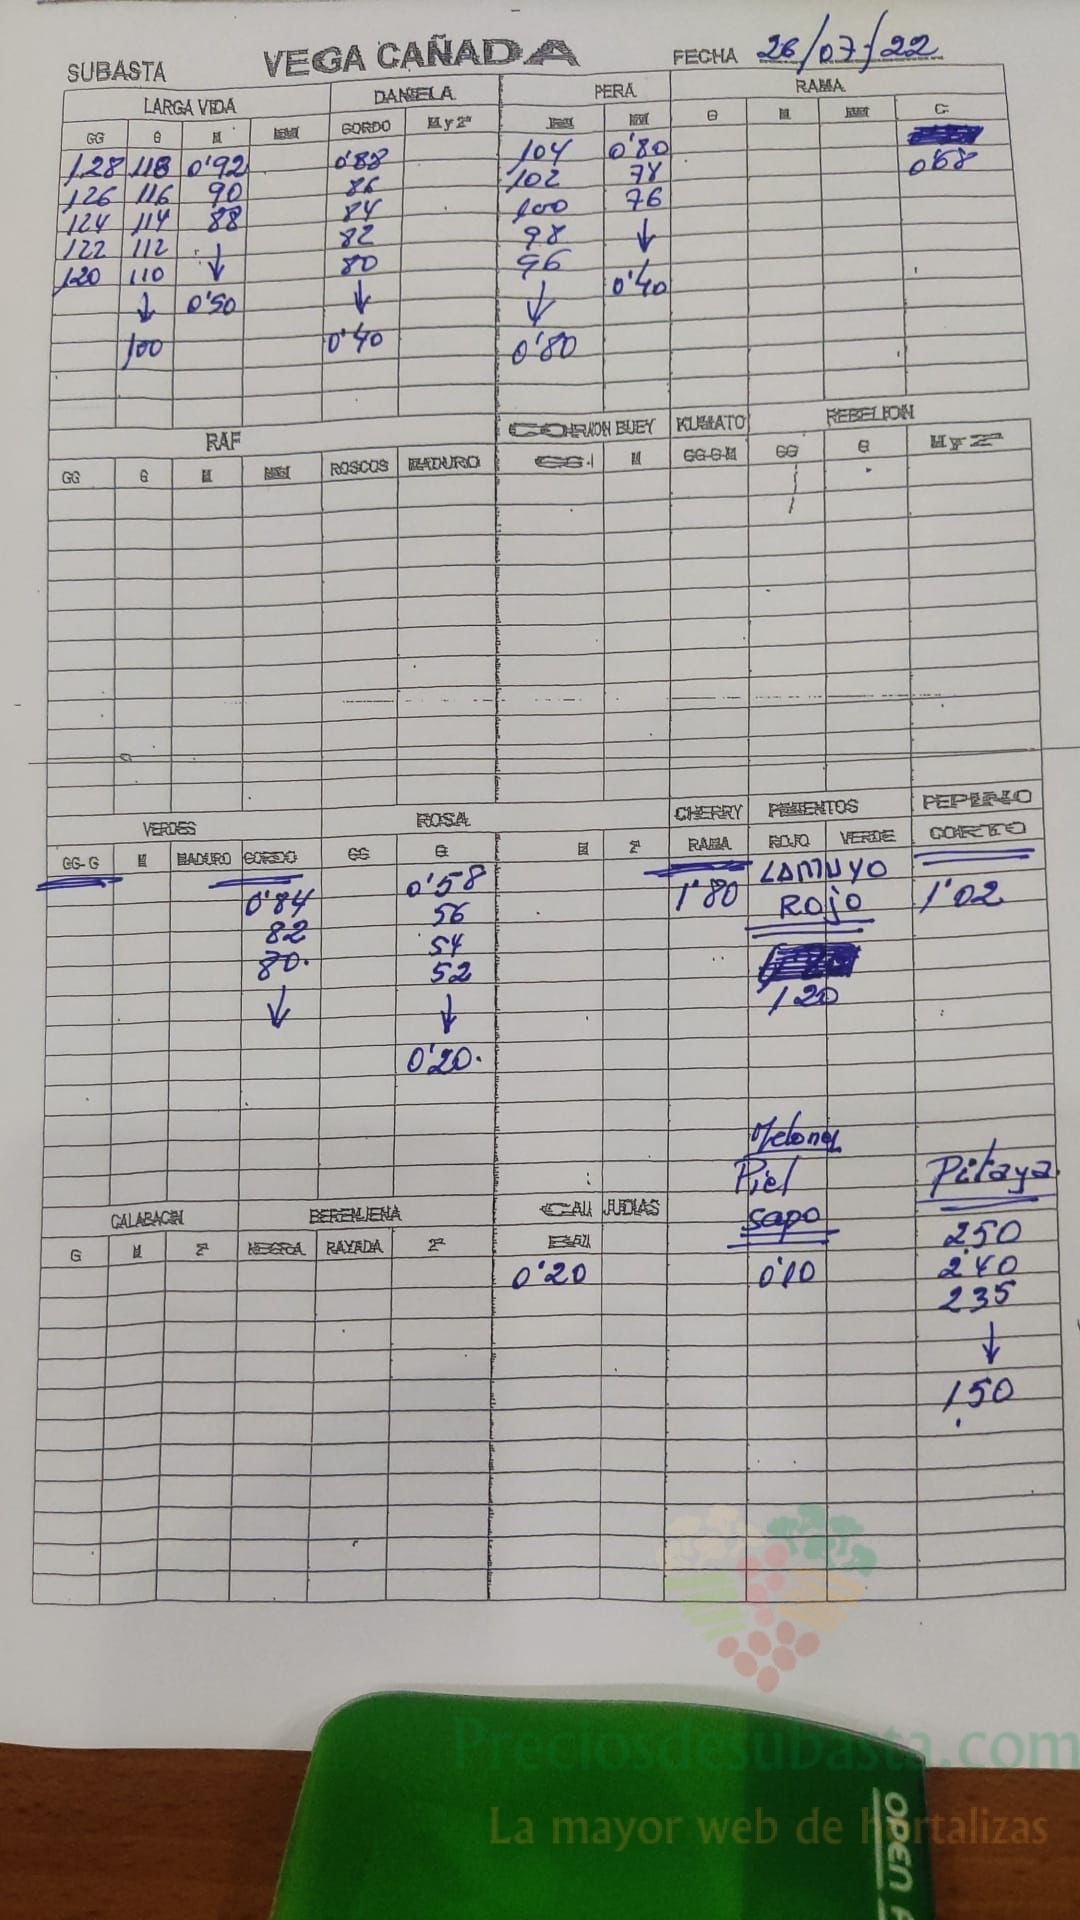 SUBASTA VEGA CAÑADA FECHA 26/07/22
LARGA VIDA DANIELA PERA RAMA
GG G M MM GORDO M y 2ª MM G M MM C
128 118 0'92 0'88 104 0'80
126 116 90 86 102 78 0'68
124 114 88 84 100 76
122 112 ↓ 82 98 ↓
120 110 80 96 0'40
↓ 0'50 ↓ ↓
100 0'40 0'80
RAF CORAZON BUEY KUMATO REBELION
GG G M MM ROSCOS MADURO GG. M GG-G-M GG G M y 2ª
VERDES ROSA CHERRY PIMIENTOS PEPINO
GG-G M MADURO GORDO GG G M 2ª RAMA ROJO VERDE CORTO
0'84 0'58 1'80 LAMUYO 1'02
82 56 ROJO
80. 54
↓ 52 1'20
↓
0'20.
Melones
Piel Pitaya
CALABACIN BERENJENA CALI JUDIAS sapo 250
G M 2ª NEGRA RAYADA 2ª BALI 240
0'20 0'10 235
↓
150
Preciosdesubasta.com
La mayor web de hortalizas
OPEN